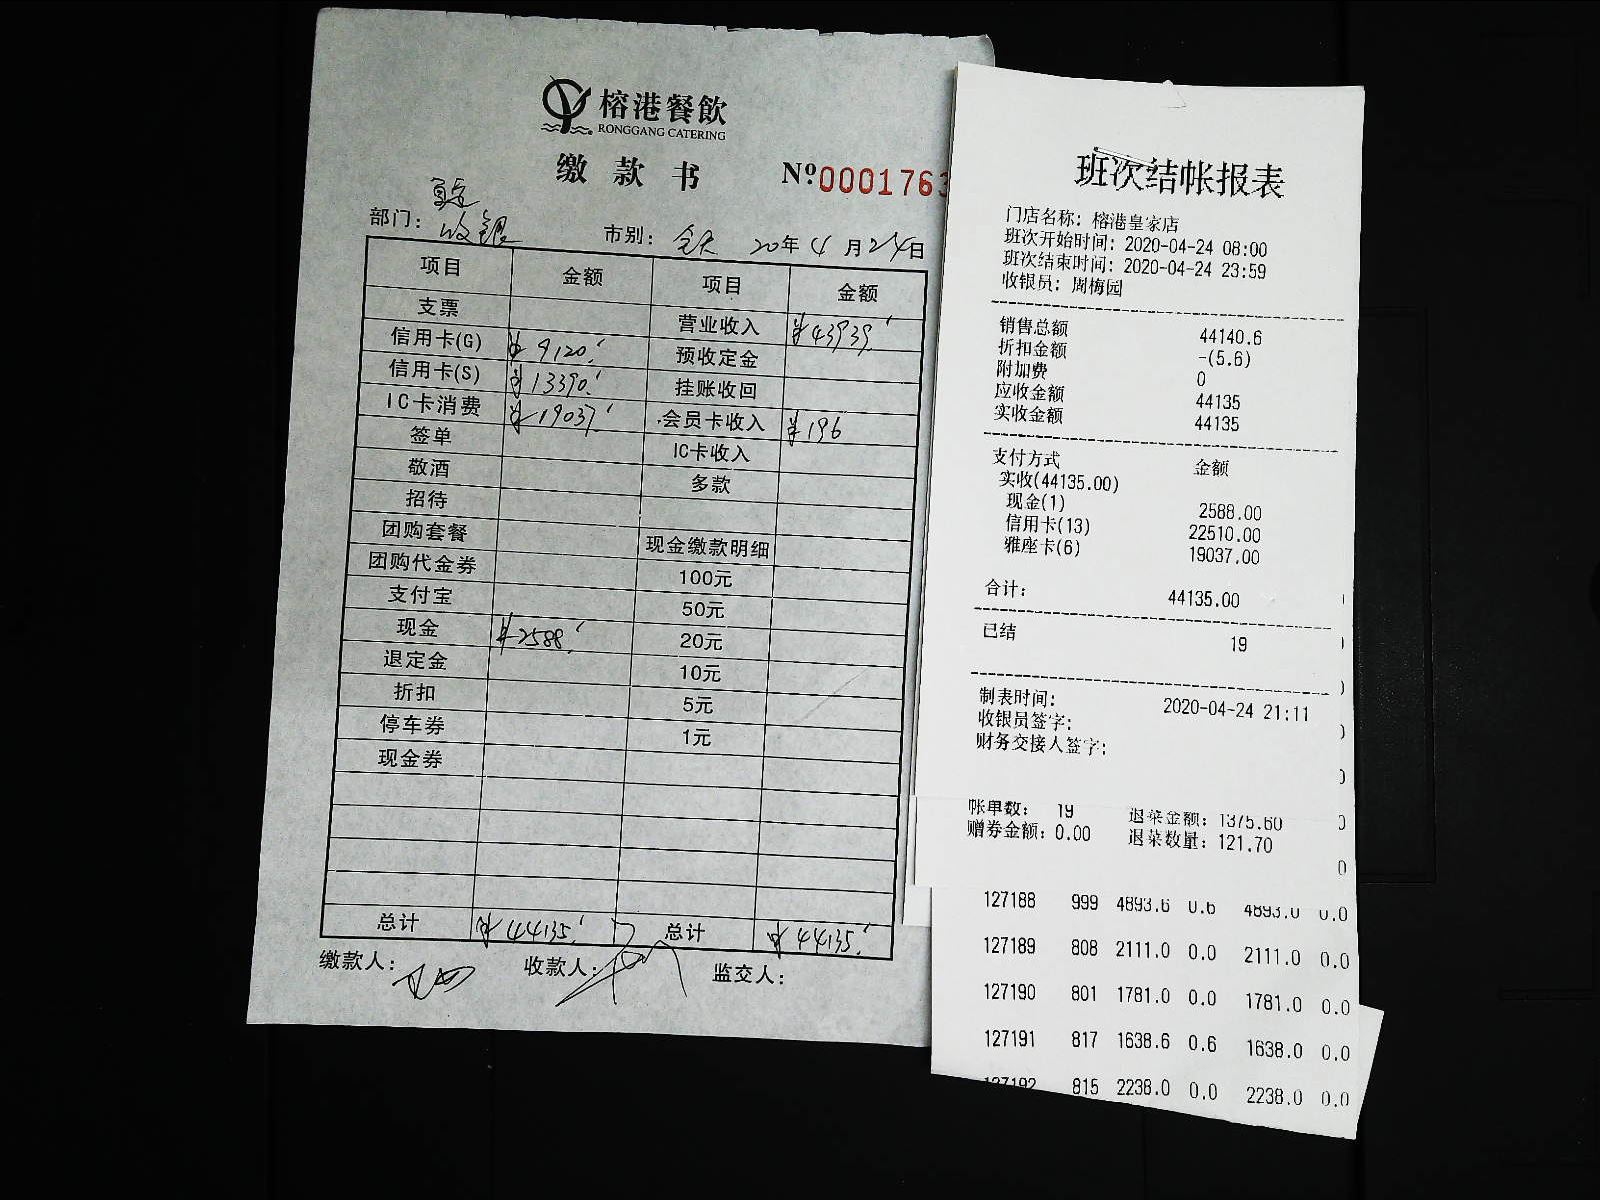 榕港餐飲
RONGGANG CATERING
缴款书 Nº000176
部门： 收银 市别： 全天 20年4月24日
项目 金额 项目 金额
支票 营业收入 ¥43939.
信用卡(G) ¥9120. 预收定金
信用卡(S) ¥13390. 挂账收回
IC卡消费 ¥19037. 会员卡收入 ¥196
签单 IC卡收入
敬酒 多款
招待
团购套餐 现金缴款明细
团购代金券 100元
支付宝 50元
现金 ¥2588. 20元
退定金 10元
折扣 5元
停车券 1元
现金券
总计 ¥44135. 总计 ¥44135.
缴款人： 收款人： 监交人：
班次结帐报表
门店名称：榕港皇家店
班次开始时间：2020-04-24 08:00
班次结束时间：2020-04-24 23:59
收银员：周梅园
销售总额 44140.6
折扣金额 -(5.6)
附加费 0
应收金额 44135
实收金额 44135
支付方式 金额
实收(44135.00)
现金(1) 2588.00
信用卡(13) 22510.00
雅座卡(6) 19037.00
合计： 44135.00
已结 19
制表时间： 2020-04-24 21:11
收银员签字：
财务交接人签字：
帐单数： 19 退菜金额：1375.60
赠券金额：0.00 退菜数量：121.70
127188 999 4893.6 0.6 4893.0 0.0
127189 808 2111.0 0.0 2111.0 0.0
127190 801 1781.0 0.0 1781.0 0.0
127191 817 1638.6 0.6 1638.0 0.0
127192 815 2238.0 0.0 2238.0 0.0